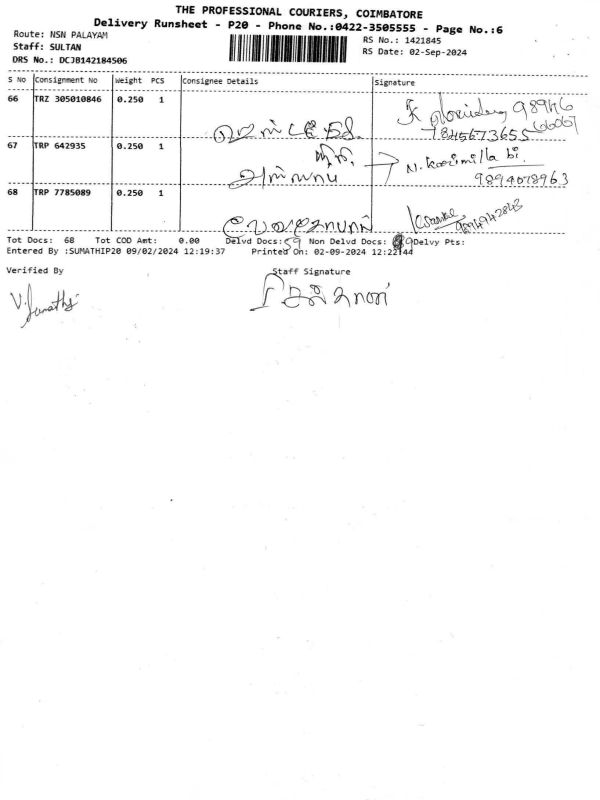 THE PROFESSIONAL COURIERS, COIMBATORE
Delivery Runsheet - P20 - Phone No.:0422-3505555 - Page No.:6
Route: NSN PALAYAM
RS No.: 1421845
Staff: SULTAN
RS Date: 02-Sep-2024
DRS No.: DCJB142184506
S No Consignment No Weight PCS Consignee Details Signature
66 TRZ 305010846 0.250 1 98946
66067
7845673655
67 TRP 642935 0.250 1 N. bi
9894078963
68 TRP 7785089 0.250 1
Tot Docs: 68 Tot COD Amt: 0.00 Delvd Docs: 59 Non Delvd Docs: 9 Delvy Pts:
Entered By :SUMATHIP20 09/02/2024 12:19:37 Printed On: 02-09-2024 12:22:44
Verified By Staff Signature
V. Sumathi